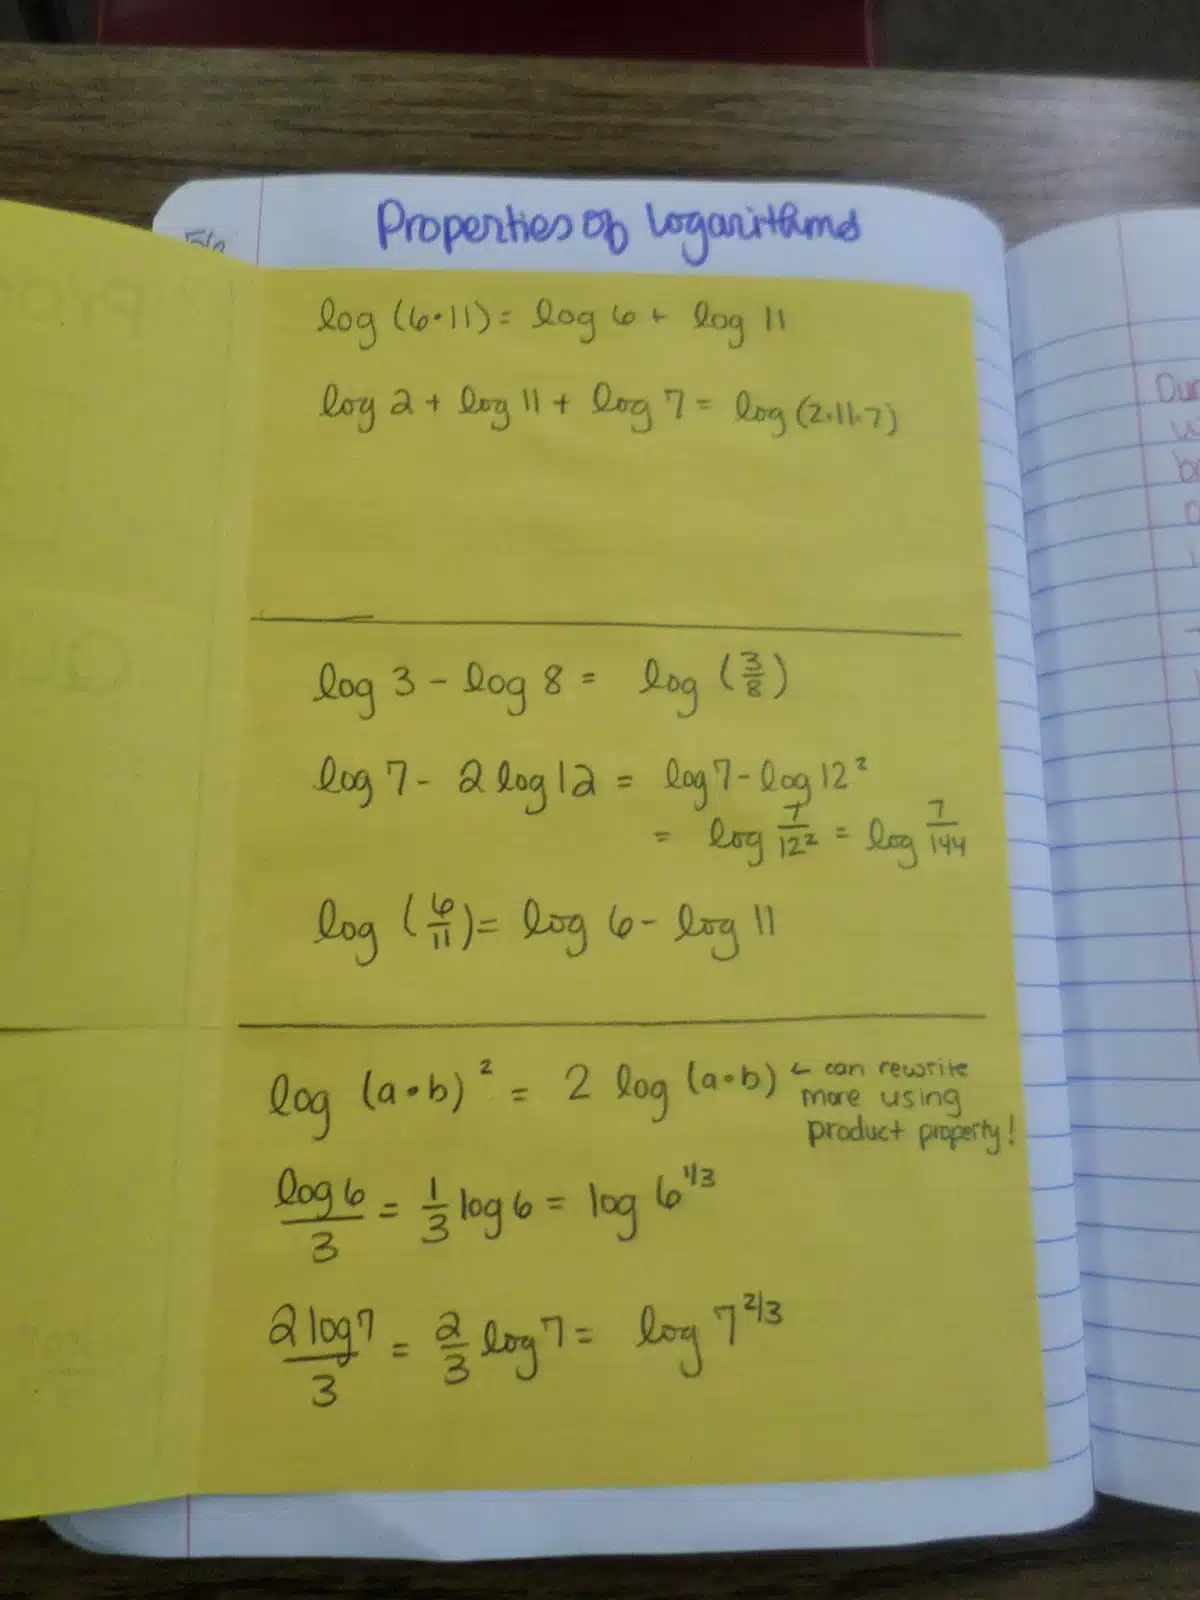 Properties of Logarithms
log (6·11) = log 6 + log 11
log 2 + log 11 + log 7 = log (2·11·7)
log 3 - log 8 = log (3/8)
log 7 - 2 log 12 = log 7 - log 12²
= log 7/12² = log 7/144
log (6/11) = log 6 - log 11
log (a·b)² = 2 log (a·b) ← can rewrite
more using
product property!
log 6/3 = 1/3 log 6 = log 6^1/3
2 log 7/3 = 2/3 log 7 = log 7^2/3